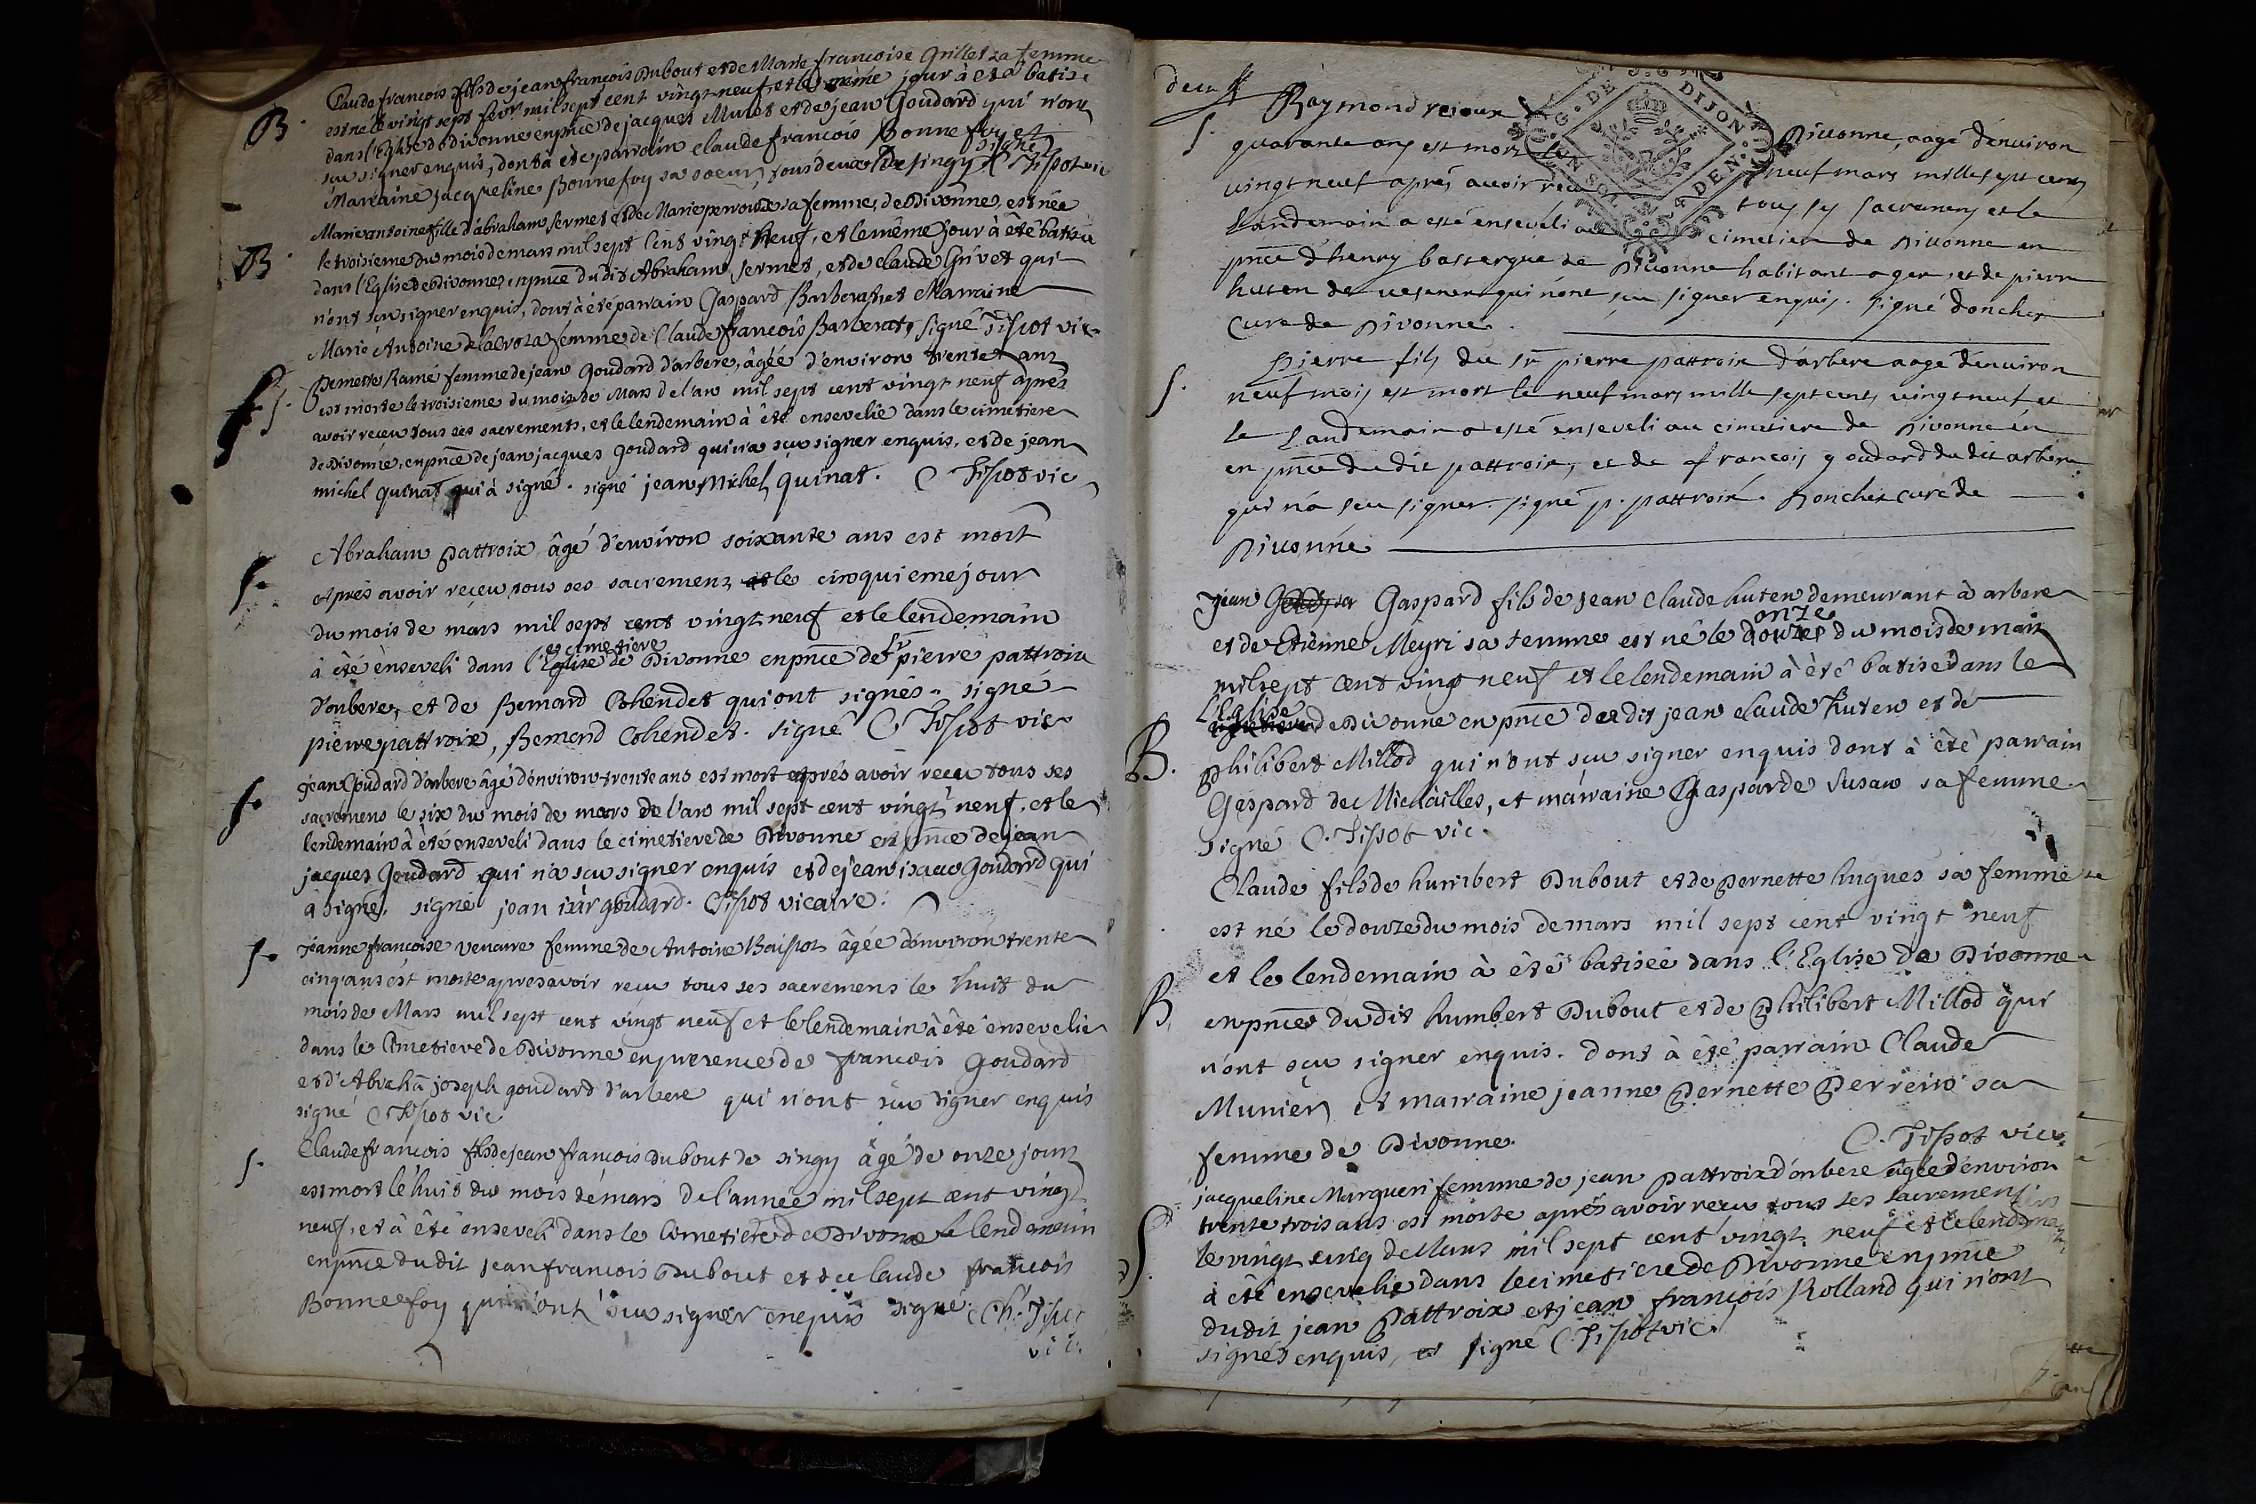 Claude francois fils de jean françois Dubout et de Marie francoise Grillet sa femme
est né le vingt sept fevr mil sept cent vingt neuf et le même jour à eté batisé
dans l'Eglise de divonne en pnce de jacques Munet et de jean Goudard qui n'ont
B.
scu signer enquis, dont à été parrain claude francois Bonnefoy et
Marraine jacqueline Bonnefoy sa soeur, tous deux de singy signé C Tispot vic
Marie antoine fille d'abraham sermet et de Marie perroud sa femme, de Divonne, est née
B.
le troisieme du mois de mars mil sept cent vingt neuf, et le même jour à été batisée
dans l'Eglise de Divonne, en pnce dudit Abraham sermet, et de claude Grivet qui
n'ont scu signer enquis, dont à été parrain Gaspard Barberat et Marraine
Marie Antoine delacroz sa femme de Claude françois Barberat, signé Tispot vic
Pernette Ramé femme de jean Goudard d'arbere, âgée d'environ trente ans
S.
est morte le troisieme du mois de Mars de l'an mil sept cent vingt neuf après
avoir receu tous ses sacrements, et le lendemain à été ensevelie dans le cimetiere
de Divonne, en pnce de jean jacques Goudard qui n'a scu signer enquis, et de jean
michel quinat qui à signé. signé jean Michel quinat. C Tispot vic
Abraham pattroix âgé d'environ soixante ans est mort
S.
Après avoir receu tous ses sacremens le cinquieme jour
du mois de mars mil sept cent vingt neuf et le lendemain
et cimetiere
à été enseveli dans l'Eglise de Divonne en pnce de Sr pierre pattroix
d'arbere, et de Bernard Cohendet qui ont signés. signé
pierre pattroix, Bernard Cohendet. signé C. Tispot vic
jean Goudard d'arbere âgé d'environ trente ans est mort après avoir receu tous ses
S.
sacremens le six du mois de mars de l'an mil sept cent vingt neuf, et le
lendemain à été enseveli dans le cimetiere de Divonne en pnce de jean
jacques Goudard qui n'a scu signer enquis et de jean isaac Goudard qui
à signé. signé jean isac goudard. Tispot vicaire.
S.
jeanne françoise femme de Antoine âgée d'environ trente
cinq ans est morte apres avoir recu tous ses sacremens le huit du
mois de Mars mil sept cent vingt neuf et le lendemain à été ensevelie
dans le Cimetiere de Divonne en presence de françois Goudard
et d'Abrahã joseph goudard d'arbere qui n'ont scu signer enquis
signé C Tispot vic
S.
Claude francois fils de jean francois Dubout de singy âgé de onze jours
est mort le huit du mois de mars de l'année mil sept cent vingt
neuf, et à été enseveli dans le Cimetiere de Divonne le lendemain
en pnce dudit jean francois Dubout et de claude francois
Bonnefoy qui n'ont scu signer enquis signé Ch. Tispot
vic.
deux
Raymond Divonne, aagé d'environ
S.
quarante ans est mort le neuf mars mille sept cents
vingt neuf aprés avoir receu tous ses sacremens et le
Landemain a esté enseveli au cimetiere de Divonne en
pnce d'henry de Divonne habitant a gex, et de pierre
huten de qui n'ont scu signer enquis. signé Donchet
Curé de Divonne.
Pierre fils du Sr pierre pattroix d'arbere aagé d'environ
S.
neuf mois est mort le neuf mars mille sept cents vingt neuf et
le Landemain a esté enseveli au cimetiere de Divonne en
en pnce dudit pattroix, et de francois goudard dudit arbere
qui n'a scu signer. signé p. pattroix. Donchet curé de
Divonne
jean Gaspard fils de jean claude huten demeurant à arbere
onze
et de Etienne Meyri sa femme est né le douze du mois de mars
mil sept cent vingt neuf et le lendemain à été batisé dans le
l'Eglise
de Divonne en pnce dudit jean claude huten et de
B.
Philibert Millod qui n'ont scu signer enquis dont à été parrain
Gaspard de Michailles, et marraine Gasparde susan sa femme
signé C. Tispot vic.
Claude fils de humbert Dubout et de Pernette hugues sa femme
est né le douze du mois de mars mil sept cent vingt neuf
et le lendemain à été batisée dans l'Eglise de Divonne
B.
en pnce dudit humbert Dubout et de Philibert Millod qui
n'ont scu signer enquis. dont à été parrain Claude
Munier et marraine jeanne Pernette Perrein sa
femme de Divonne. C. Tispot vic.
jacqueline Marqueri femme de jean pattroix d'arbere âgée d'environ
trente trois ans est morte après avoir receu tous ses sacremens
S.
le vingt cinq de Mars mil sept cent vingt neuf et le lendemain
à été ensevelie dans le cimetiere de Divonne en pnce
dudit jean Pattroix et jean françois Rolland qui n'ont
signés enquis, signé C. Tispot vic.